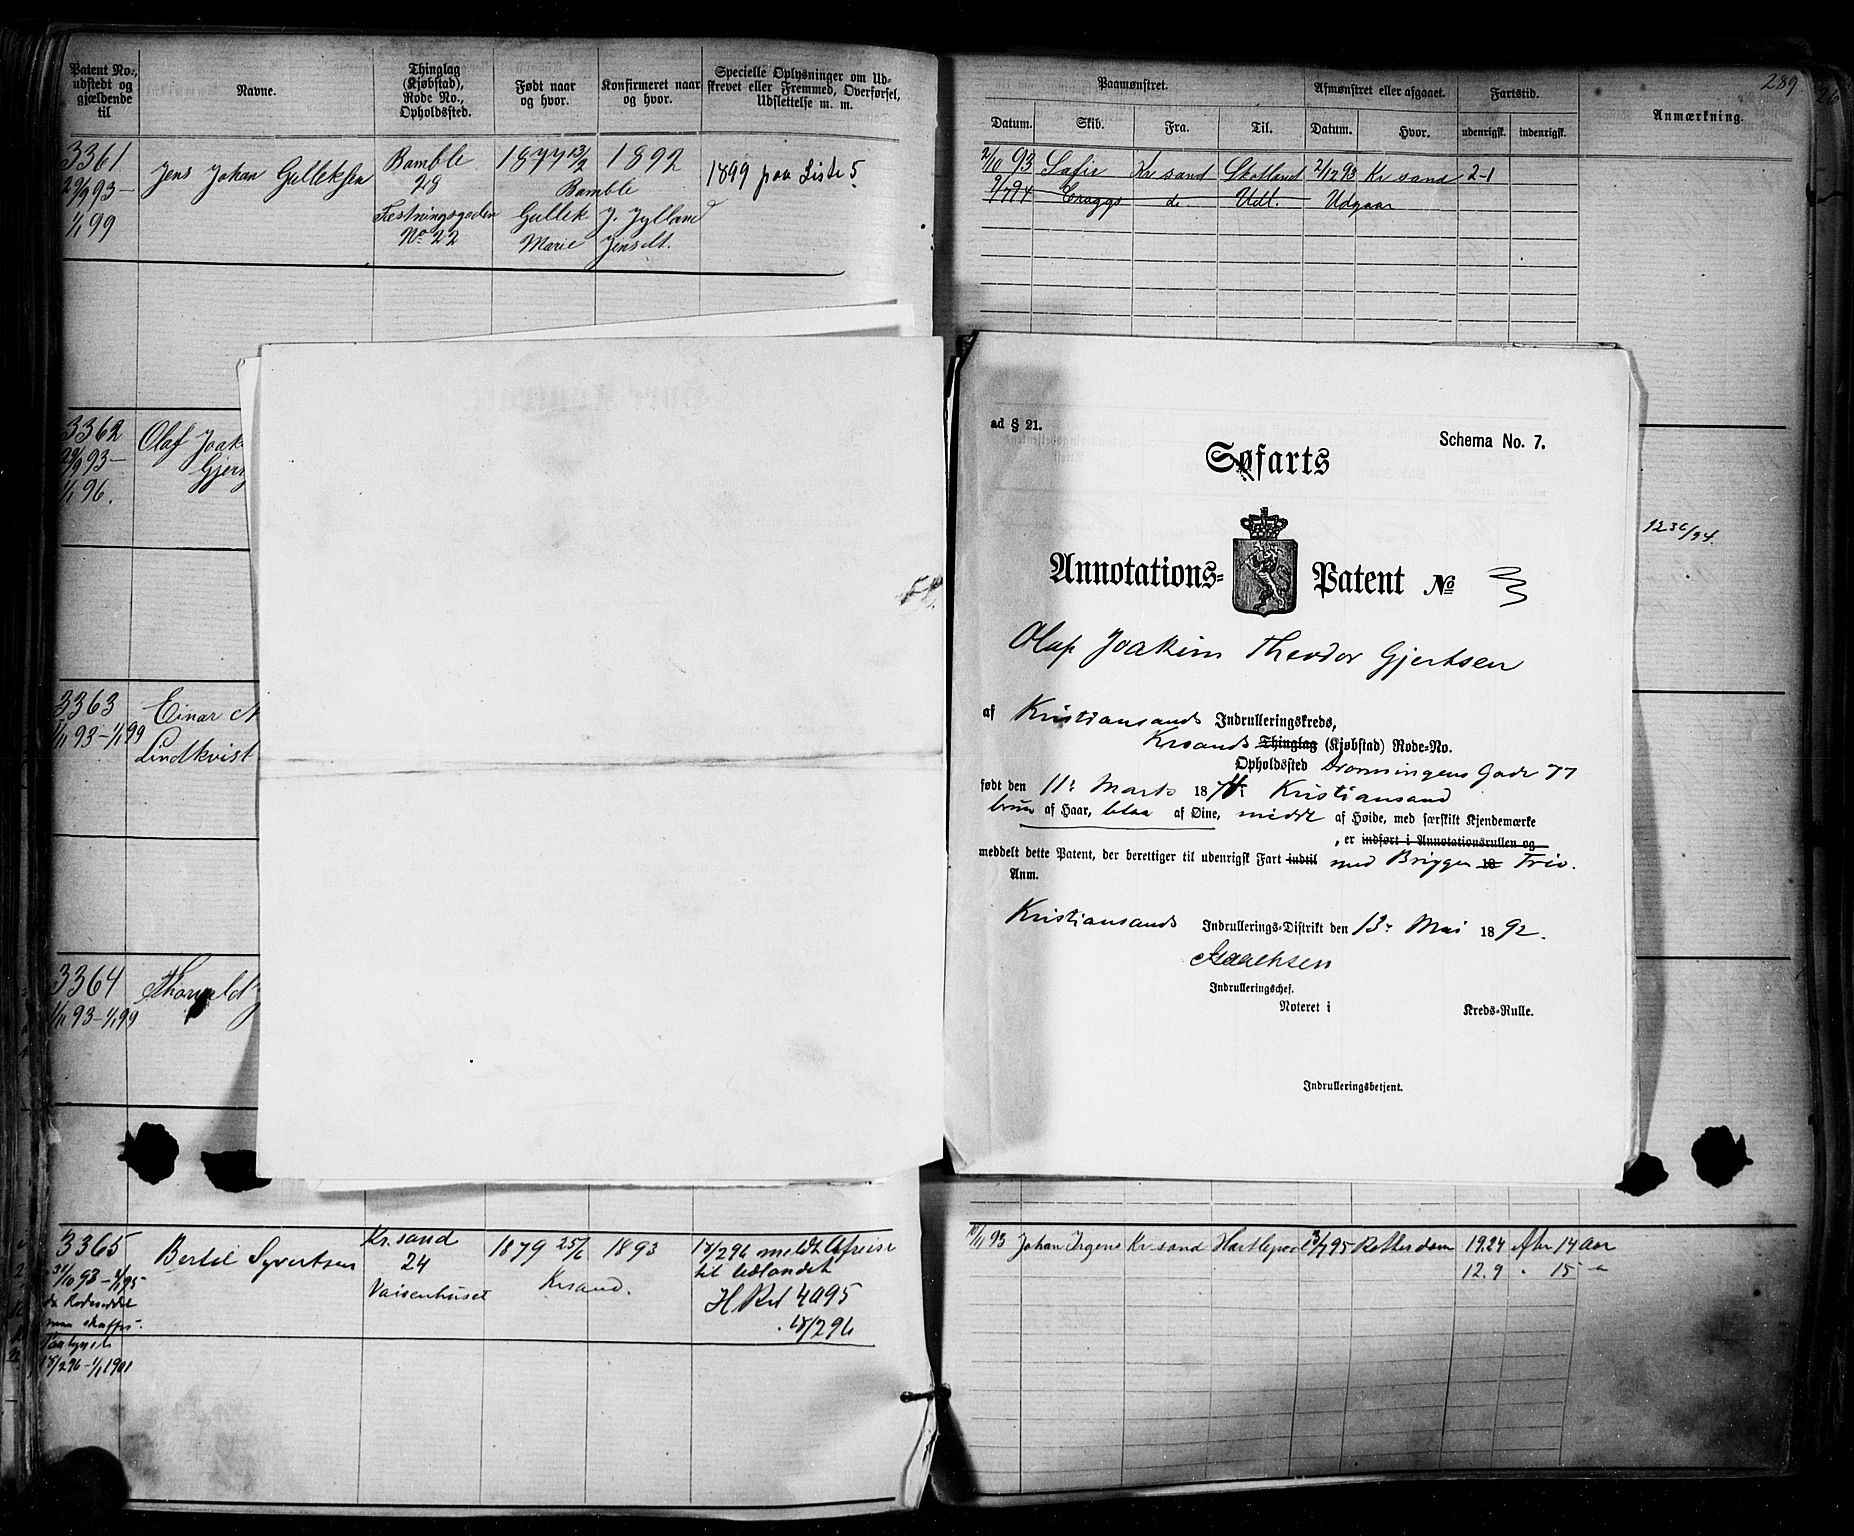 Patent No., udstedt og gjældende til
Navne.
Thinglag (Kjøbstad), Rode No., Opholdssted.
Født naar og hvor.
Konfirmeret naar og hvor.
Specielle Oplysninger om Udskrevet eller Fremmed, Overførsel, Udslettelse m. m.
Paamønstret.
Datum. Skib. Fra. Til.
Afmønstret eller afgaaet.
Datum. Hvor.
Fartstid.
udenrigsk. indenrigsk.
Anmærkning.
289
3361
29/9 93 –
1/1 99
Jens Johan Gulleksen
Bamble
29
Festningsgaden
No 22
1877 23/2 1892
Bamble
Gullek J. Jylland
Marie Jensdt.
1899 paa Liste 5
2/10 93 Sofie Kr sand Skotland 2/12 93 Kr sand 2-1
9/7 94 Craggs do Udl. Udgaar
3362
29/9 93 –
1/1 96.
Olaf Joak
Gjer
1236/94.
3363
1/11 93 – 1/1 99
Einar
Lindkvist
3364
1/11 93 – 1/1 99
Thorvald
ad § 21.
Schema No. 7.
Søfarts
Annotations- Patent No 3
Olaf Joakim Theodor Gjertsen
af Kristiansands Indrulleringskreds,
Krsands Thinglag (Kjøbstad) Rode-No.
Opholdssted Dronningens Gade 77
født den 11te Marts 187 Kristiansand
brun af Haar, blaa af Øine, middl af Høide, med særskilt Kjendemærke
, er indført i Annotationsrullen og
meddelt dette Patent, der berettiger til udenrigsk Fart indtil med Briggen 18 Trio.
Anm.
Kristiansands Indrullerings-Distrikt den 13te Mai 1892.
Isaachsen
Indrulleringschef.
Noteret i Kreds-Rulle.
Indrulleringsbetjent.
3365
31/10 93 – 1/1 95
Bertel Syvertsen
Kr.sand
24
Vaisenhuset
1879 25/6 1893
Krsand.
18/2 96 meldt Afreise
til Udlandet
H Rul 4095
18/2 96
18/2 96 – 1/1 1901
10/11 93 Johan Irgens Kr sand Hartlepool 95 Rotterdam 19.24 Før 14 Aar
12.9 " 15 "